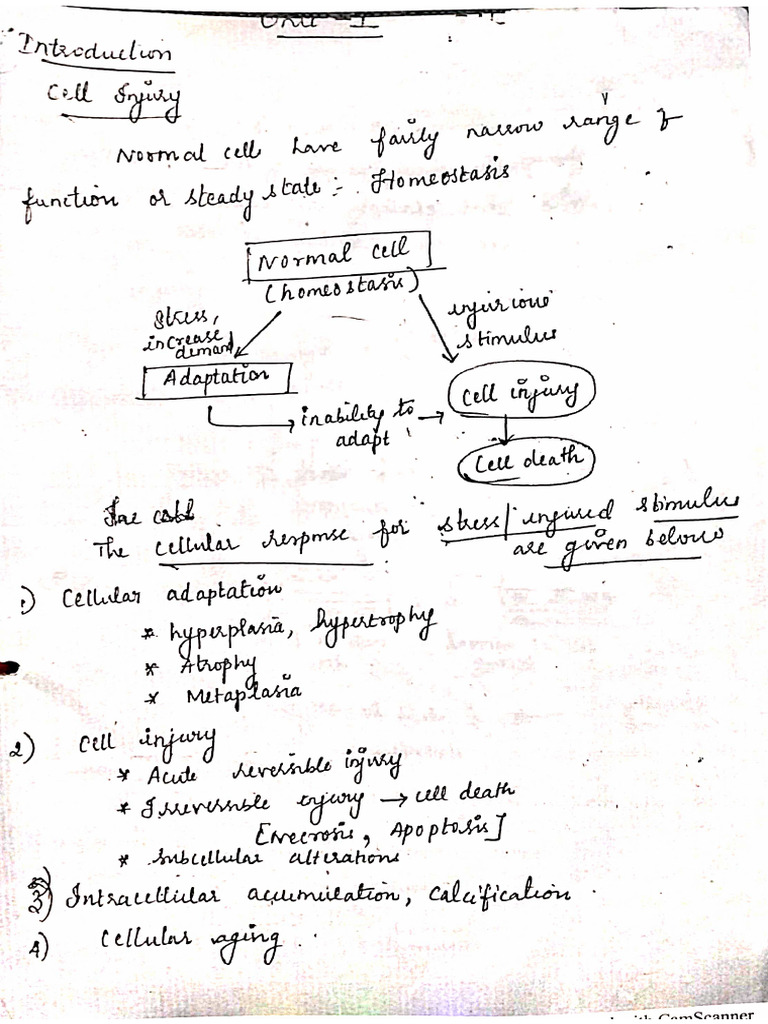 Unit - I
Introduction
Cell Injury
Normal cell have fairly narrow range of
function or steady state :- Homeostasis
Normal cell
(homeostasis)
Stress,
increase
demand
injurious
stimulus
Adaptation
Cell injury
inability to
adapt
Cell death
The cellular response for stress/injured stimulus
are given below
1) Cellular adaptation
* hyperplasia, hypertrophy
* Atrophy
* Metaplasia
2) Cell injury
* Acute reversible injury
* Irreversible injury → cell death
[Necrosis, Apoptosis]
* Subcellular alterations
3) Intracellular accumulation, calcification.
4) Cellular aging.
with CamScanner